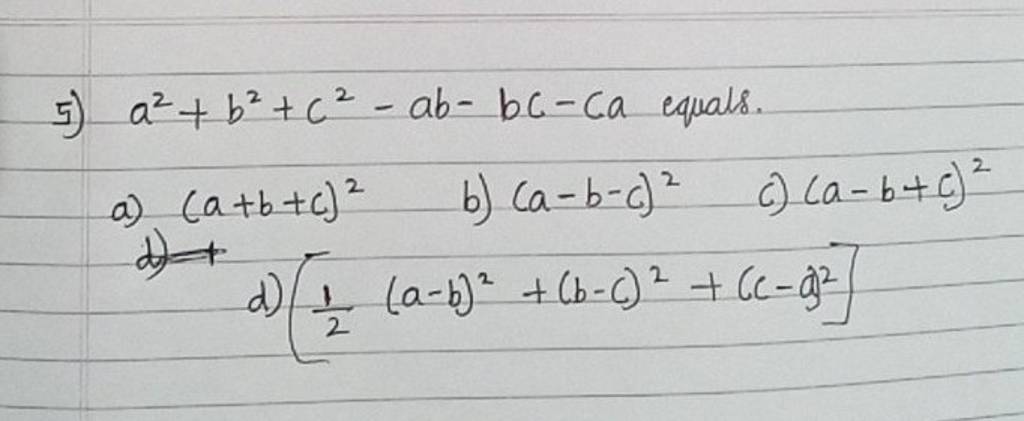 5) a² + b² + c² - ab - bc - ca equals.
a) (a+b+c)² b) (a-b-c)² c) (a-b+c)²
d) [1/2 (a-b)² + (b-c)² + (c-a)²]